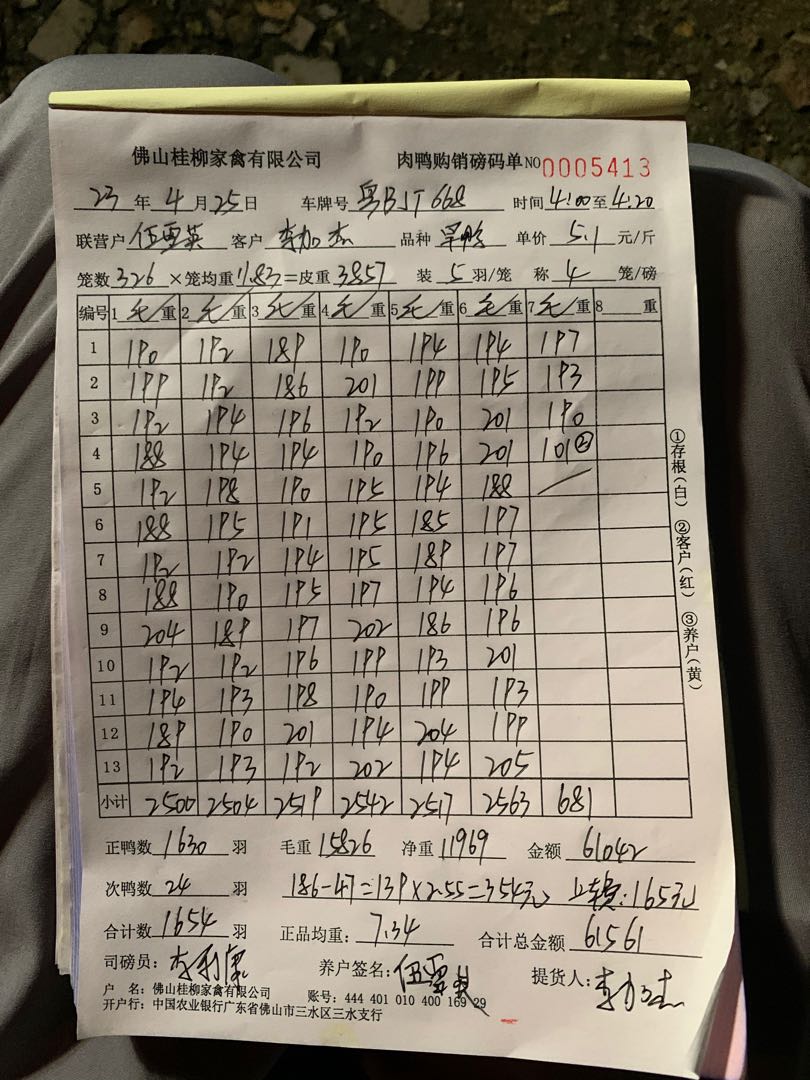 佛山桂柳家禽有限公司 肉鸭购销磅码单 NO 0005413
23 年 4 月 25 日 车牌号 粤BJT668 时间 4:00 至 4:20
联营户 伍雪英 客户 李加杰 品种 单价 5.1 元/斤
笼数 326 ×笼均重 11.83 =皮重 3857 装 5 羽/笼 称 4 笼/磅
编号 1 毛/重 2 毛/重 3 毛/重 4 毛/重 5 毛/重 6 毛/重 7 毛/重 8 重
1 190 192 189 190 194 194 197
2 199 192 186 201 199 195 193
3 192 194 196 192 190 201 190
4 188 194 194 190 196 201 101②
5 192 198 190 195 194 188 /
6 188 195 191 195 185 197
7 192 192 194 195 189 197
8 188 190 195 197 194 196
9 204 189 197 202 186 196
10 192 192 196 199 193 201
11 194 193 198 190 199 193
12 189 190 201 194 204 199
13 192 193 192 202 194 205
小计 2500 2504 2519 2542 2517 2563 681
①存根(白) ②客户(红) ③养户(黄)
正鸭数 1630 羽 毛重 15826 净重 11969 金额 61042
次鸭数 24 羽 186-47=139×2.55=354元 上车费:165元
合计数 1654 羽 正品均重: 7.34 合计总金额 61561
司磅员: 养户签名: 伍雪英 提货人: 李加杰
户 名: 佛山桂柳家禽有限公司 账号: 444 401 010 400 169 29
开户行: 中国农业银行广东省佛山市三水区三水支行